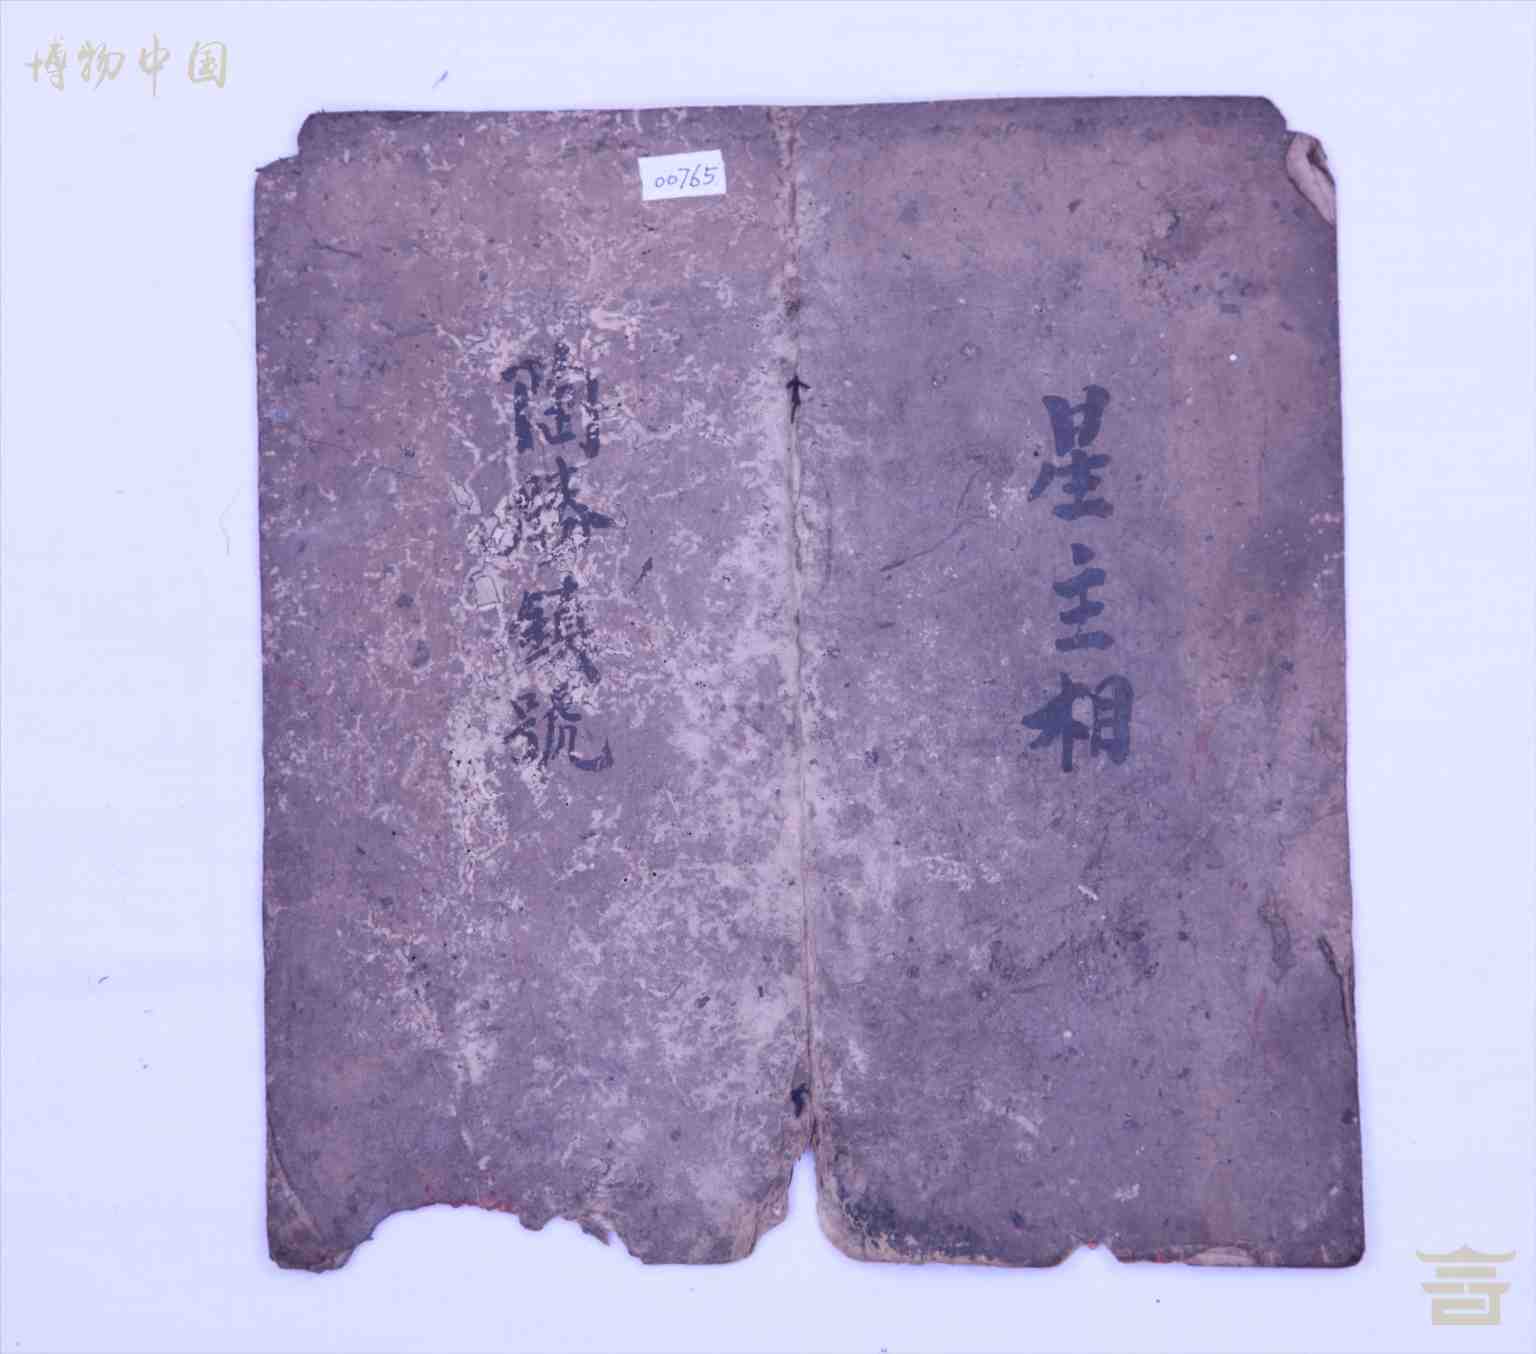 博物中国
00765
星主相
陶勝鎮號